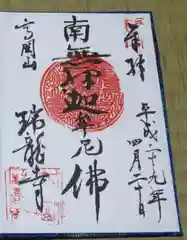 奉拝
平成二十九年
四月二十日
南無釈迦牟尼佛
高岡山
瑞龍寺